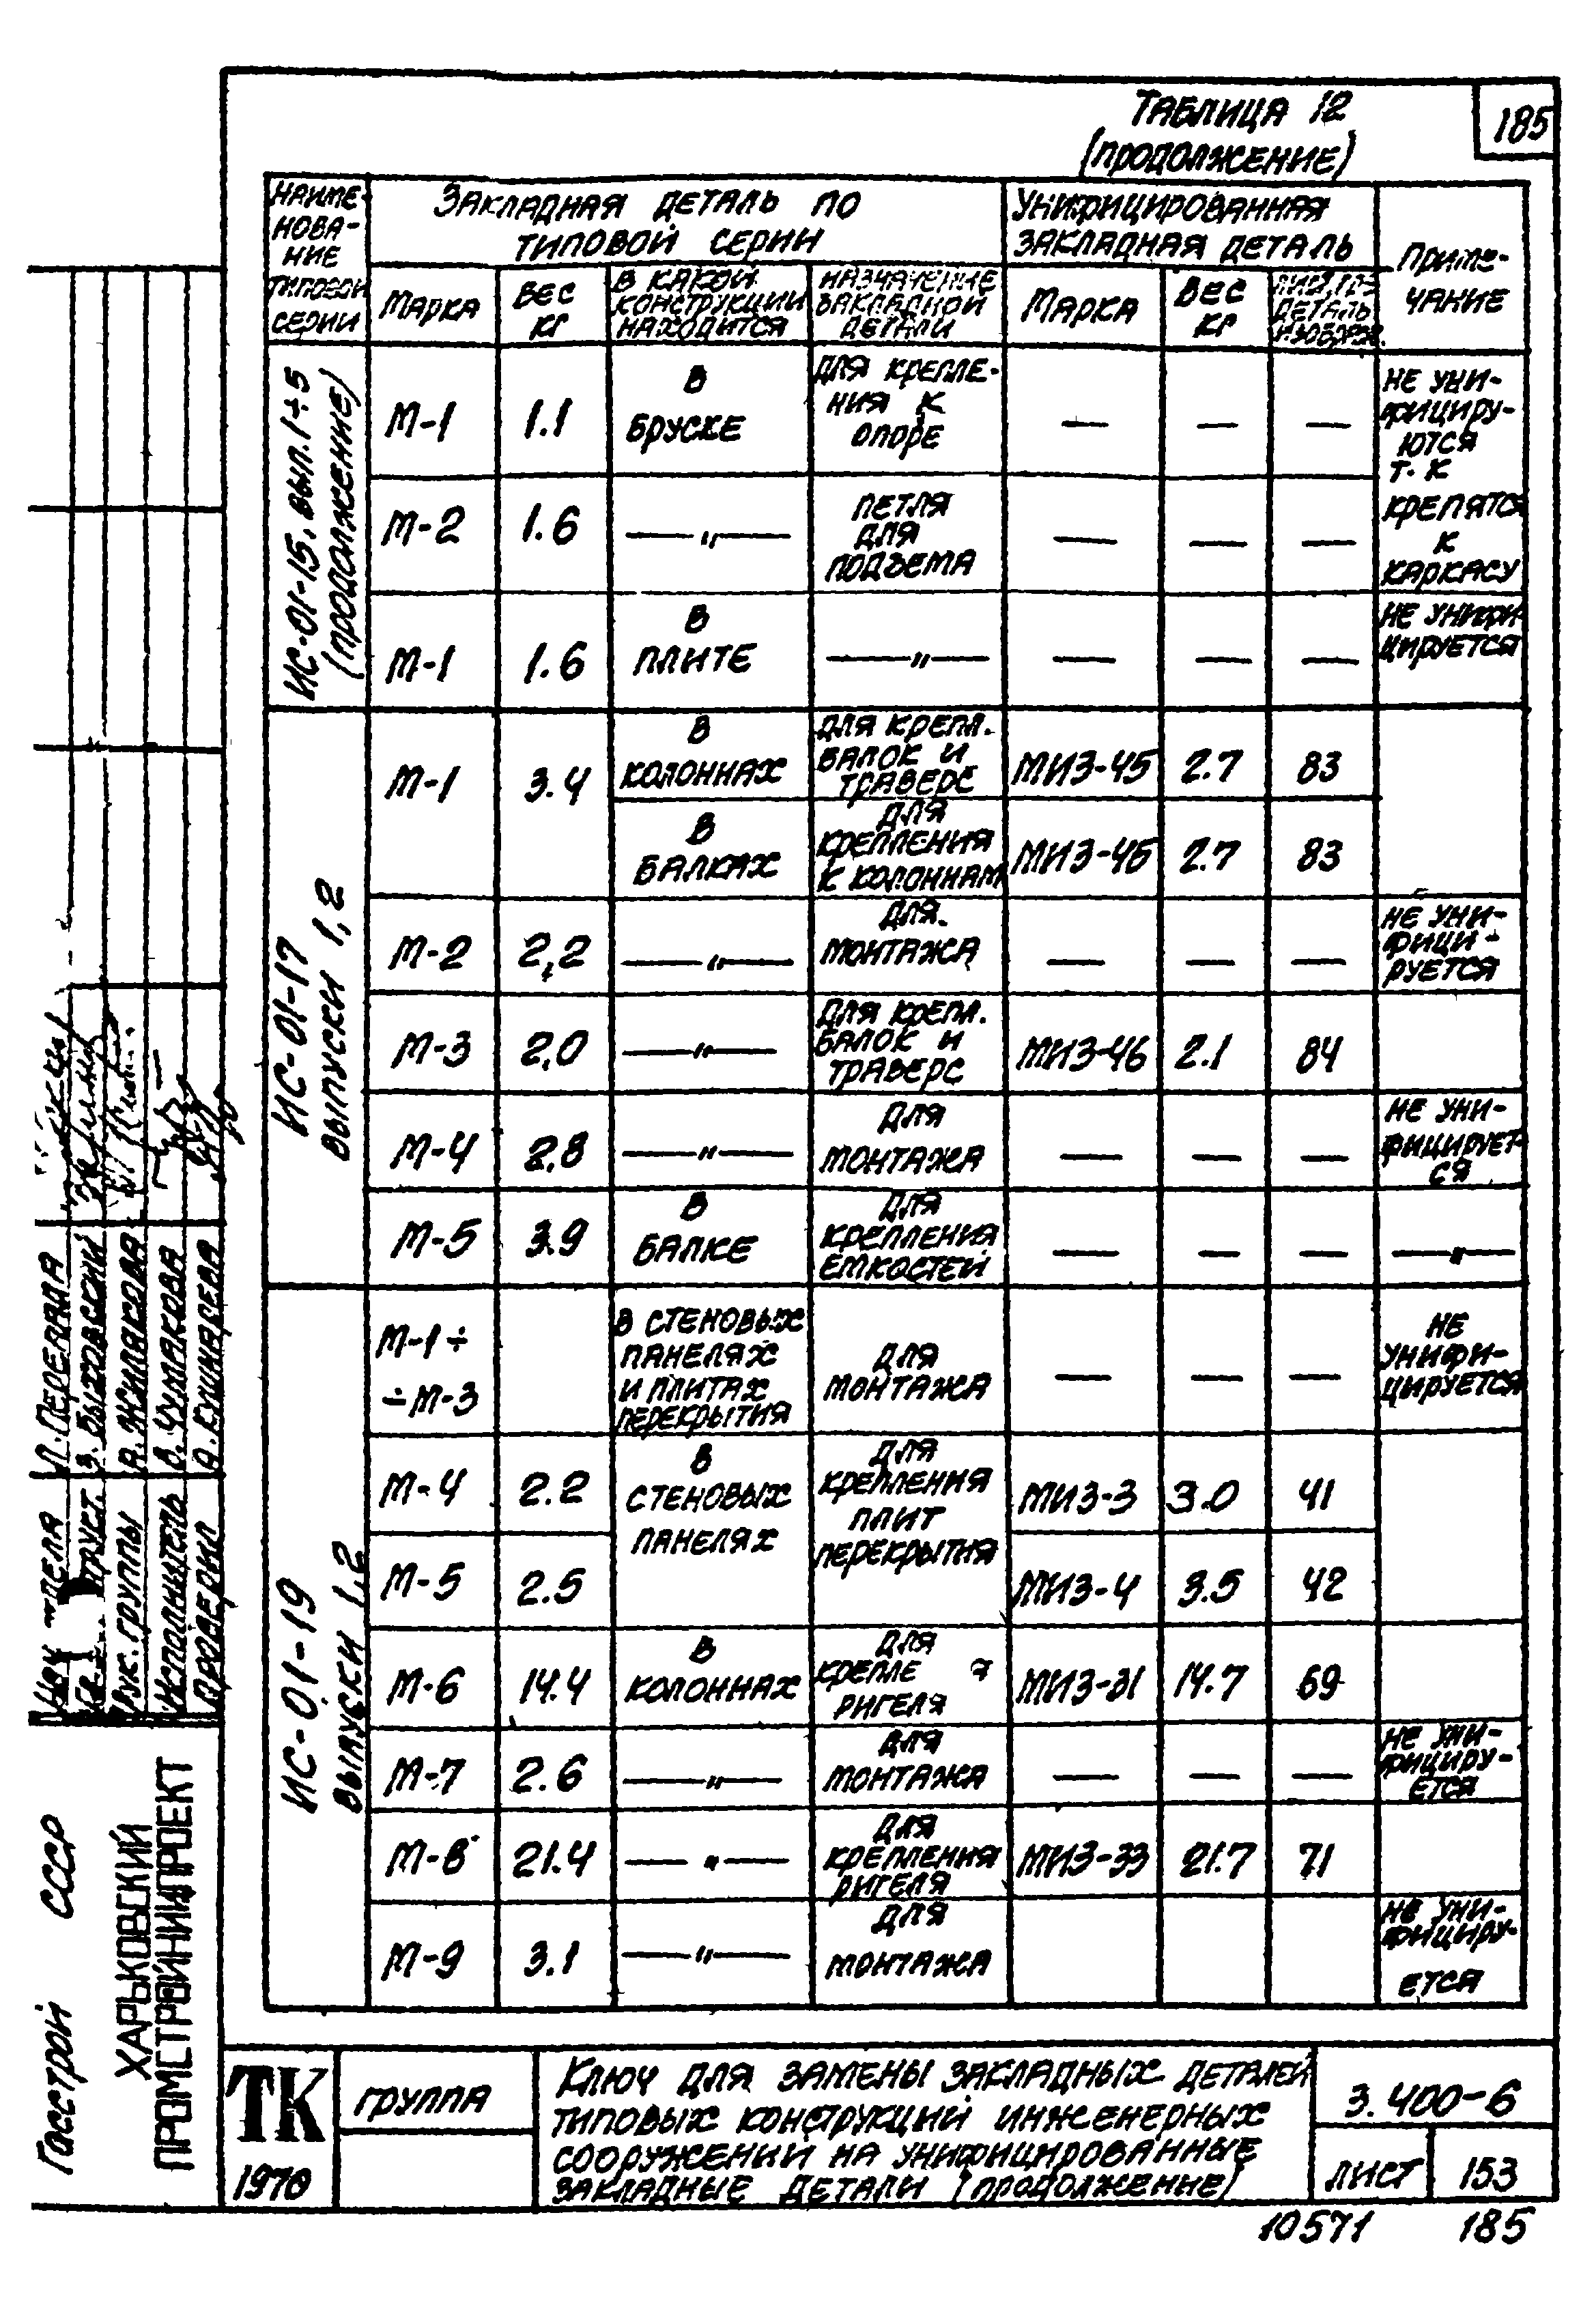 ТАБЛИЦА 12
(ПРОДОЛЖЕНИЕ)
185
НАИМЕ-
НОВА-
НИЕ
ТИПОВОЙ
СЕРИИ
ЗАКЛАДНАЯ ДЕТАЛЬ ПО
ТИПОВОЙ СЕРИИ
УНИФИЦИРОВАННАЯ
ЗАКЛАДНАЯ ДЕТАЛЬ
ПРИМЕ-
ЧАНИЕ
МАРКА
ВЕС
КГ
В КАКОЙ
КОНСТРУКЦИИ
НАХОДИТСЯ
НАЗНАЧЕНИЕ
ЗАКЛАДНОЙ
ДЕТАЛИ
МАРКА
ВЕС
КГ
ЛИСТ, ГДЕ
ДЕТАЛЬ
ИЗОБРАЖ.
ИС-01-15, ВЫП. 1÷5
(ПРОДОЛЖЕНИЕ)
М-1
1.1
В
БРУСКЕ
ДЛЯ КРЕПЛЕ-
НИЯ К
ОПОРЕ
—
—
—
НЕ УНИ-
ФИЦИРУ-
ЮТСЯ
Т. К
КРЕПЯТСЯ
К
КАРКАСУ
М-2
1.6
—"—
ПЕТЛЯ
ДЛЯ
ПОДЪЕМА
—
—
—
М-1
1.6
В
ПЛИТЕ
—"—
—
—
—
НЕ УНИФИ-
ЦИРУЕТСЯ
ИС-01-17
ВЫПУСКИ 1,2
М-1
3.4
В
КОЛОННАХ
ДЛЯ КРЕПЛ.
БАЛОК И
ТРАВЕРС
МИЗ-45
2.7
83
В
БАЛКАХ
ДЛЯ
КРЕПЛЕНИЯ
К КОЛОННАМ
МИЗ-45
2.7
83
М-2
2,2
—"—
ДЛЯ
МОНТАЖА
—
—
—
НЕ УНИ-
ФИЦИ-
РУЕТСЯ
М-3
2,0
—"—
ДЛЯ КРЕПЛ.
БАЛОК И
ТРАВЕРС
МИЗ-46
2.1
84
М-4
2.8
—"—
ДЛЯ
МОНТАЖА
—
—
—
НЕ УНИ-
ФИЦИРУЕТ-
СЯ
М-5
3.9
В
БАЛКЕ
ДЛЯ
КРЕПЛЕНИЯ
ЕМКОСТЕЙ
—
—
—
—"—
ИС-01-19
ВЫПУСКИ 1,2
М-1÷
÷М-3
В СТЕНОВЫХ
ПАНЕЛЯХ
И ПЛИТАХ
ПЕРЕКРЫТИЯ
ДЛЯ
МОНТАЖА
—
—
—
НЕ
УНИФИ-
ЦИРУЕТСЯ
М-4
2.2
В
СТЕНОВЫХ
ПАНЕЛЯХ
ДЛЯ
КРЕПЛЕНИЯ
ПЛИТ
ПЕРЕКРЫТИЯ
МИЗ-3
3.0
41
М-5
2.5
МИЗ-4
3.5
42
М-6
14.4
В
КОЛОННАХ
ДЛЯ
КРЕПЛЕ Я
РИГЕЛЯ
МИЗ-31
14.7
69
М-7
2.6
—"—
ДЛЯ
МОНТАЖА
—
—
—
НЕ УНИ-
ФИЦИРУ-
ЕТСЯ
М-8
21.4
—"—
ДЛЯ
КРЕПЛЕНИЯ
РИГЕЛЯ
МИЗ-33
21.7
71
М-9
3.1
—"—
ДЛЯ
МОНТАЖА
НЕ УНИ-
ФИЦИРУ-
ЕТСЯ
И. ПЕРЕПАДА
З. БЫХОВСКИЙ
РУК. ГРУППЫ
А. ЖИЛЯКОВА
ИСПОЛНИТЕЛЬ
В. ЧУМАКОВА
ПРОВЕРИЛ
ГОССТРОЙ СССР
ХАРЬКОВСКИЙ
ПРОМСТРОЙНИИПРОЕКТ
ТК
1970
ГРУППА
КЛЮЧ ДЛЯ ЗАМЕНЫ ЗАКЛАДНЫХ ДЕТАЛЕЙ
ТИПОВЫХ КОНСТРУКЦИЙ ИНЖЕНЕРНЫХ
СООРУЖЕНИЙ НА УНИФИЦИРОВАННЫЕ
ЗАКЛАДНЫЕ ДЕТАЛИ (ПРОДОЛЖЕНИЕ)
3.400-6
ЛИСТ
153
10571
185